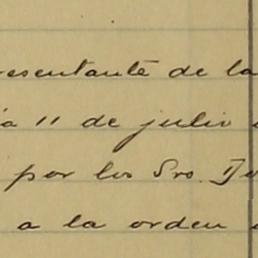 resentante de la
a 11 de julio
por los Srs.
a la orden